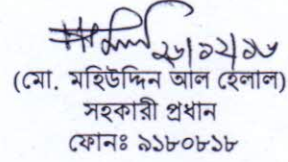 ২৮/১২/১৬
(মো. মহিউদ্দিন আল হেলাল)
সহকারী প্রধান
ফোনঃ ৯১৮০৮১৮